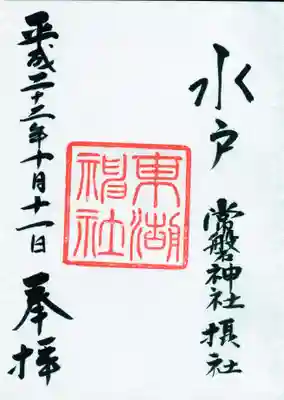 水戸 常磐神社摂社
東湖
神社
平成二十三年十月十一日 奉拝